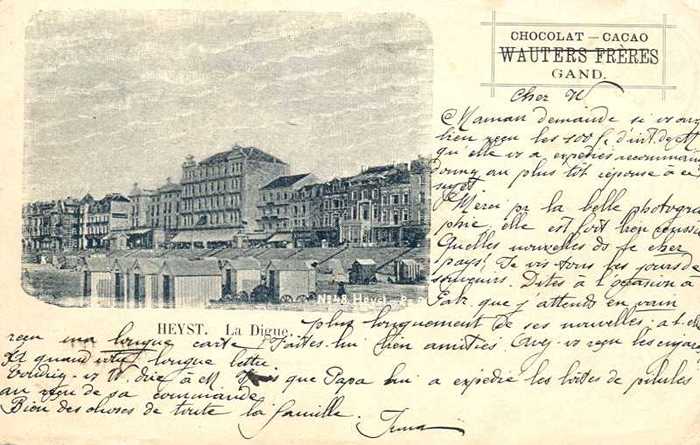 CHOCOLAT — CACAO
WAUTERS FRÈRES
GAND.
Cher
Maman demande si vous
bien reçu les 500 f. d'int.
qu'elle vs a expédiés
au plus tôt réponse à ce
sujet
Merci pr la belle photogra
phie, elle est fort bien
Quelles nouvelles du cher
pays? Je vis tous les jours de
souvenirs. Dites à l'occasion à
que j'attends en vain
No 48 Heyst.
HEYST. La Digue.
plus longuement de ses nouvelles, a-t-elle
reçu ma longue carte? Faites-lui bien amitiés vs reçu les
Et quand longue lettre
vs dire à M que Papa lui a expédié les boîtes de pilules
au reçu de sa commande
Bien des choses de toute la famille.
Irma